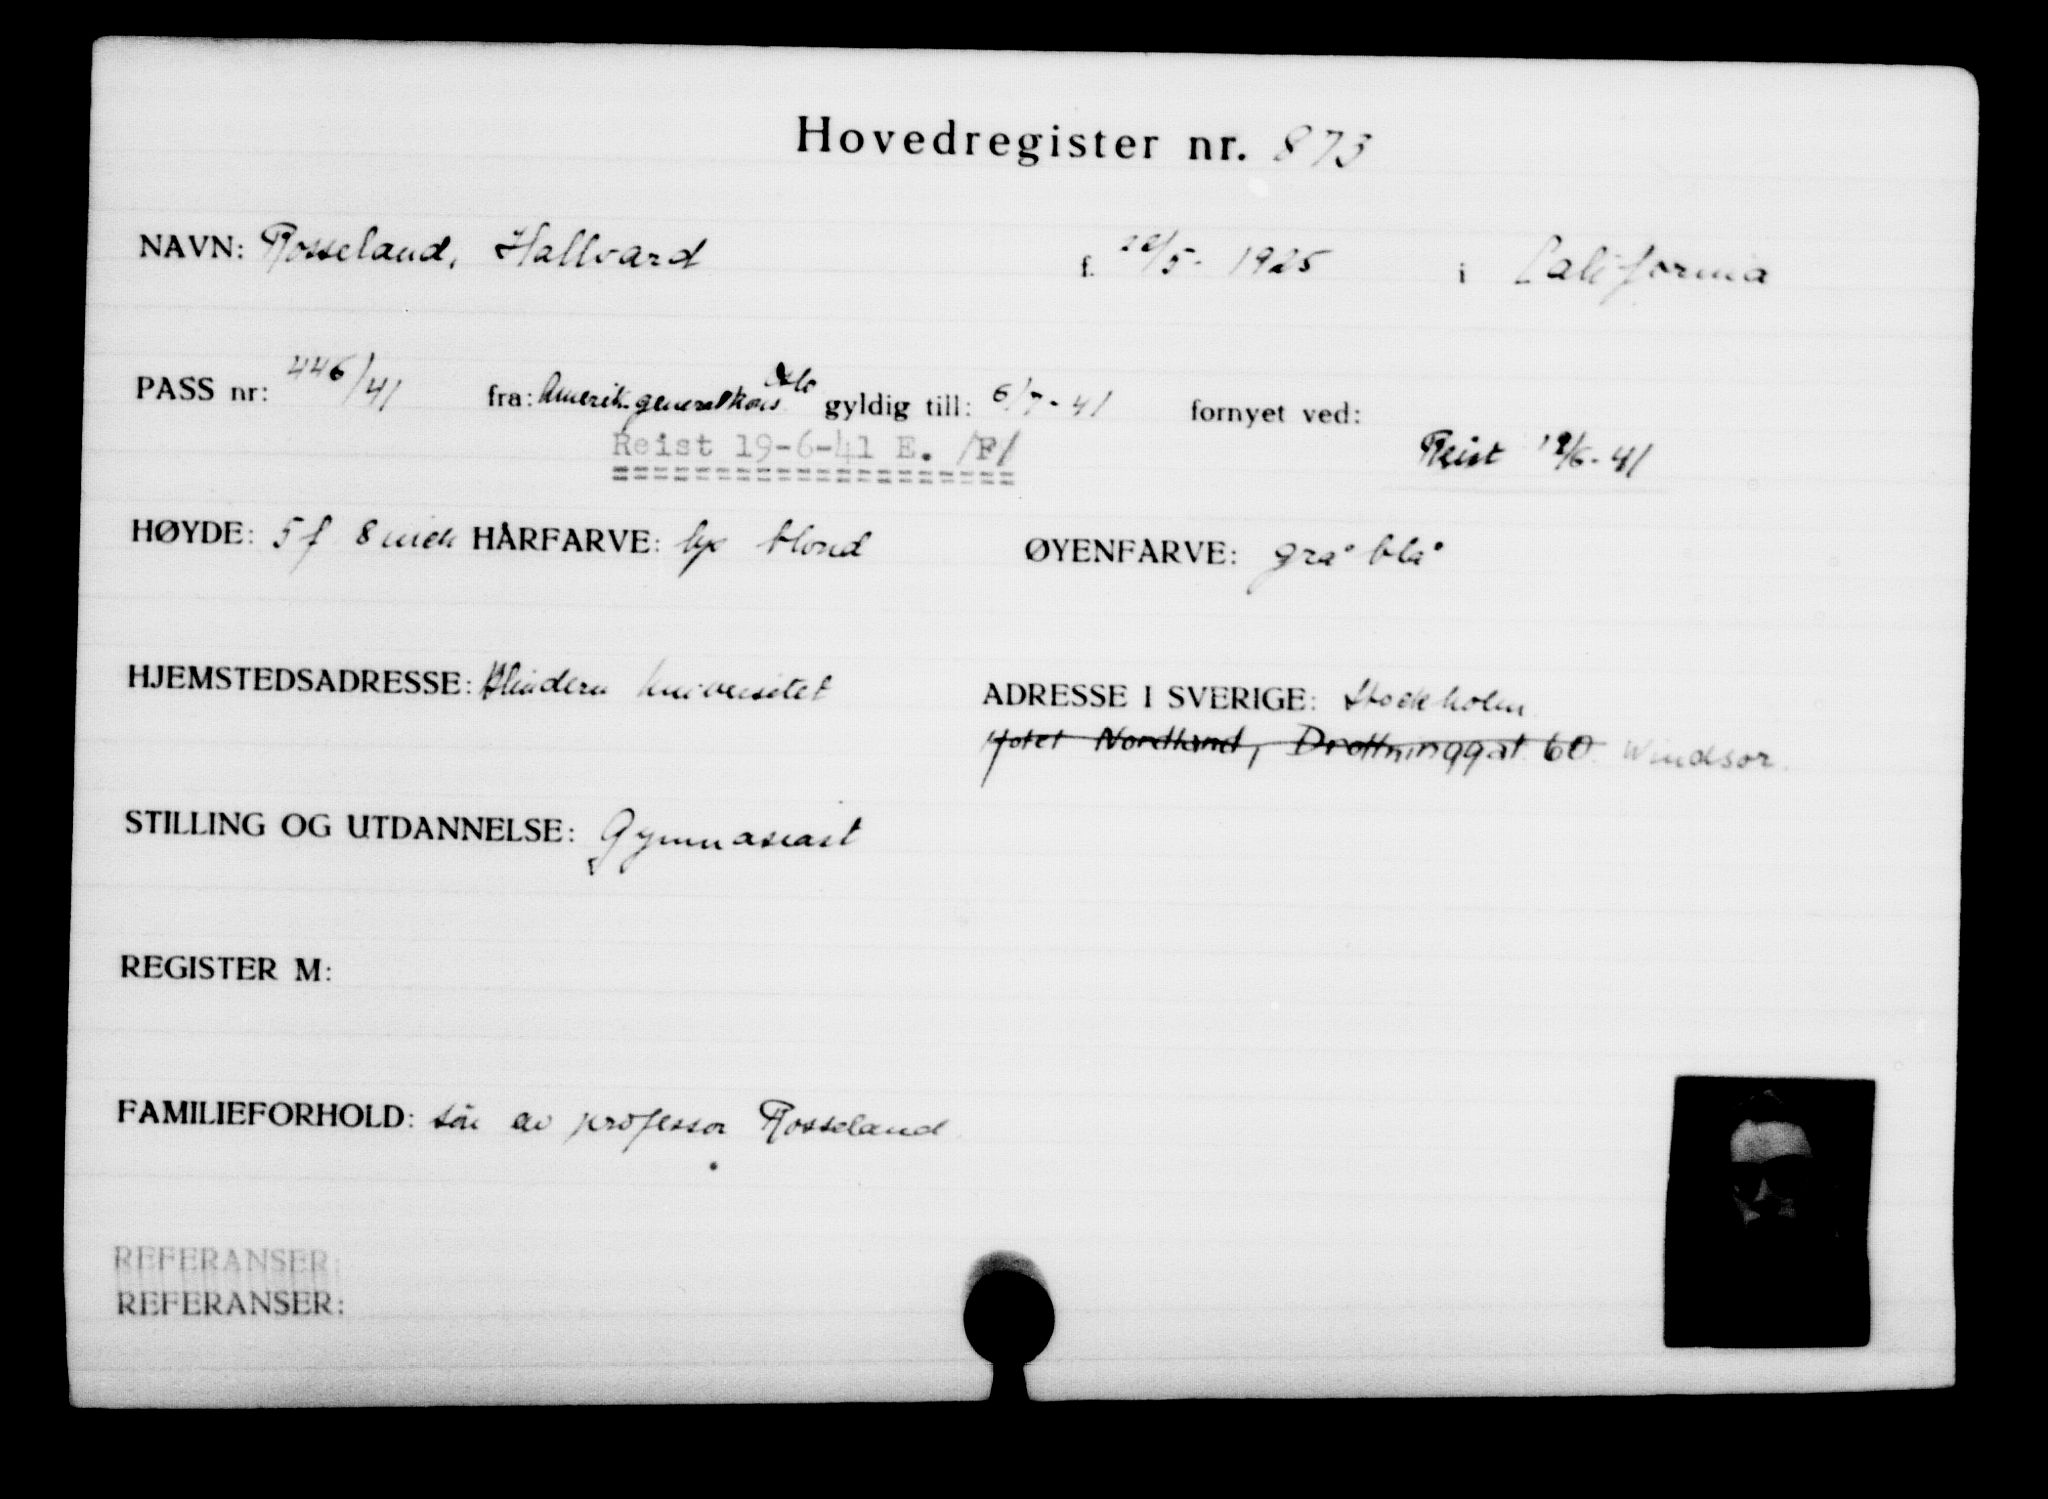 Hovedregister nr. 873
NAVN: Rosseland, Hallvard f. 28/5- 1925 i California
PASS nr: 446/41 fra: Amerik. generalkons. Oslo gyldig till: 6/7-41 fornyet ved:
Reist 19-6-41 E. /F/ Reist 19/6-41
HØYDE: 5 f 8 inch HÅRFARVE: lys blond ØYENFARVE: grå blå
HJEMSTEDSADRESSE: Blindern Universitet ADRESSE I SVERIGE: Stockholm
Hotel Nordland, Drottninggat. 60. Windsor.
STILLING OG UTDANNELSE: Gymnasiast
REGISTER M:
FAMILIEFORHOLD: søn av professor Rosseland
REFERANSER:
REFERANSER: